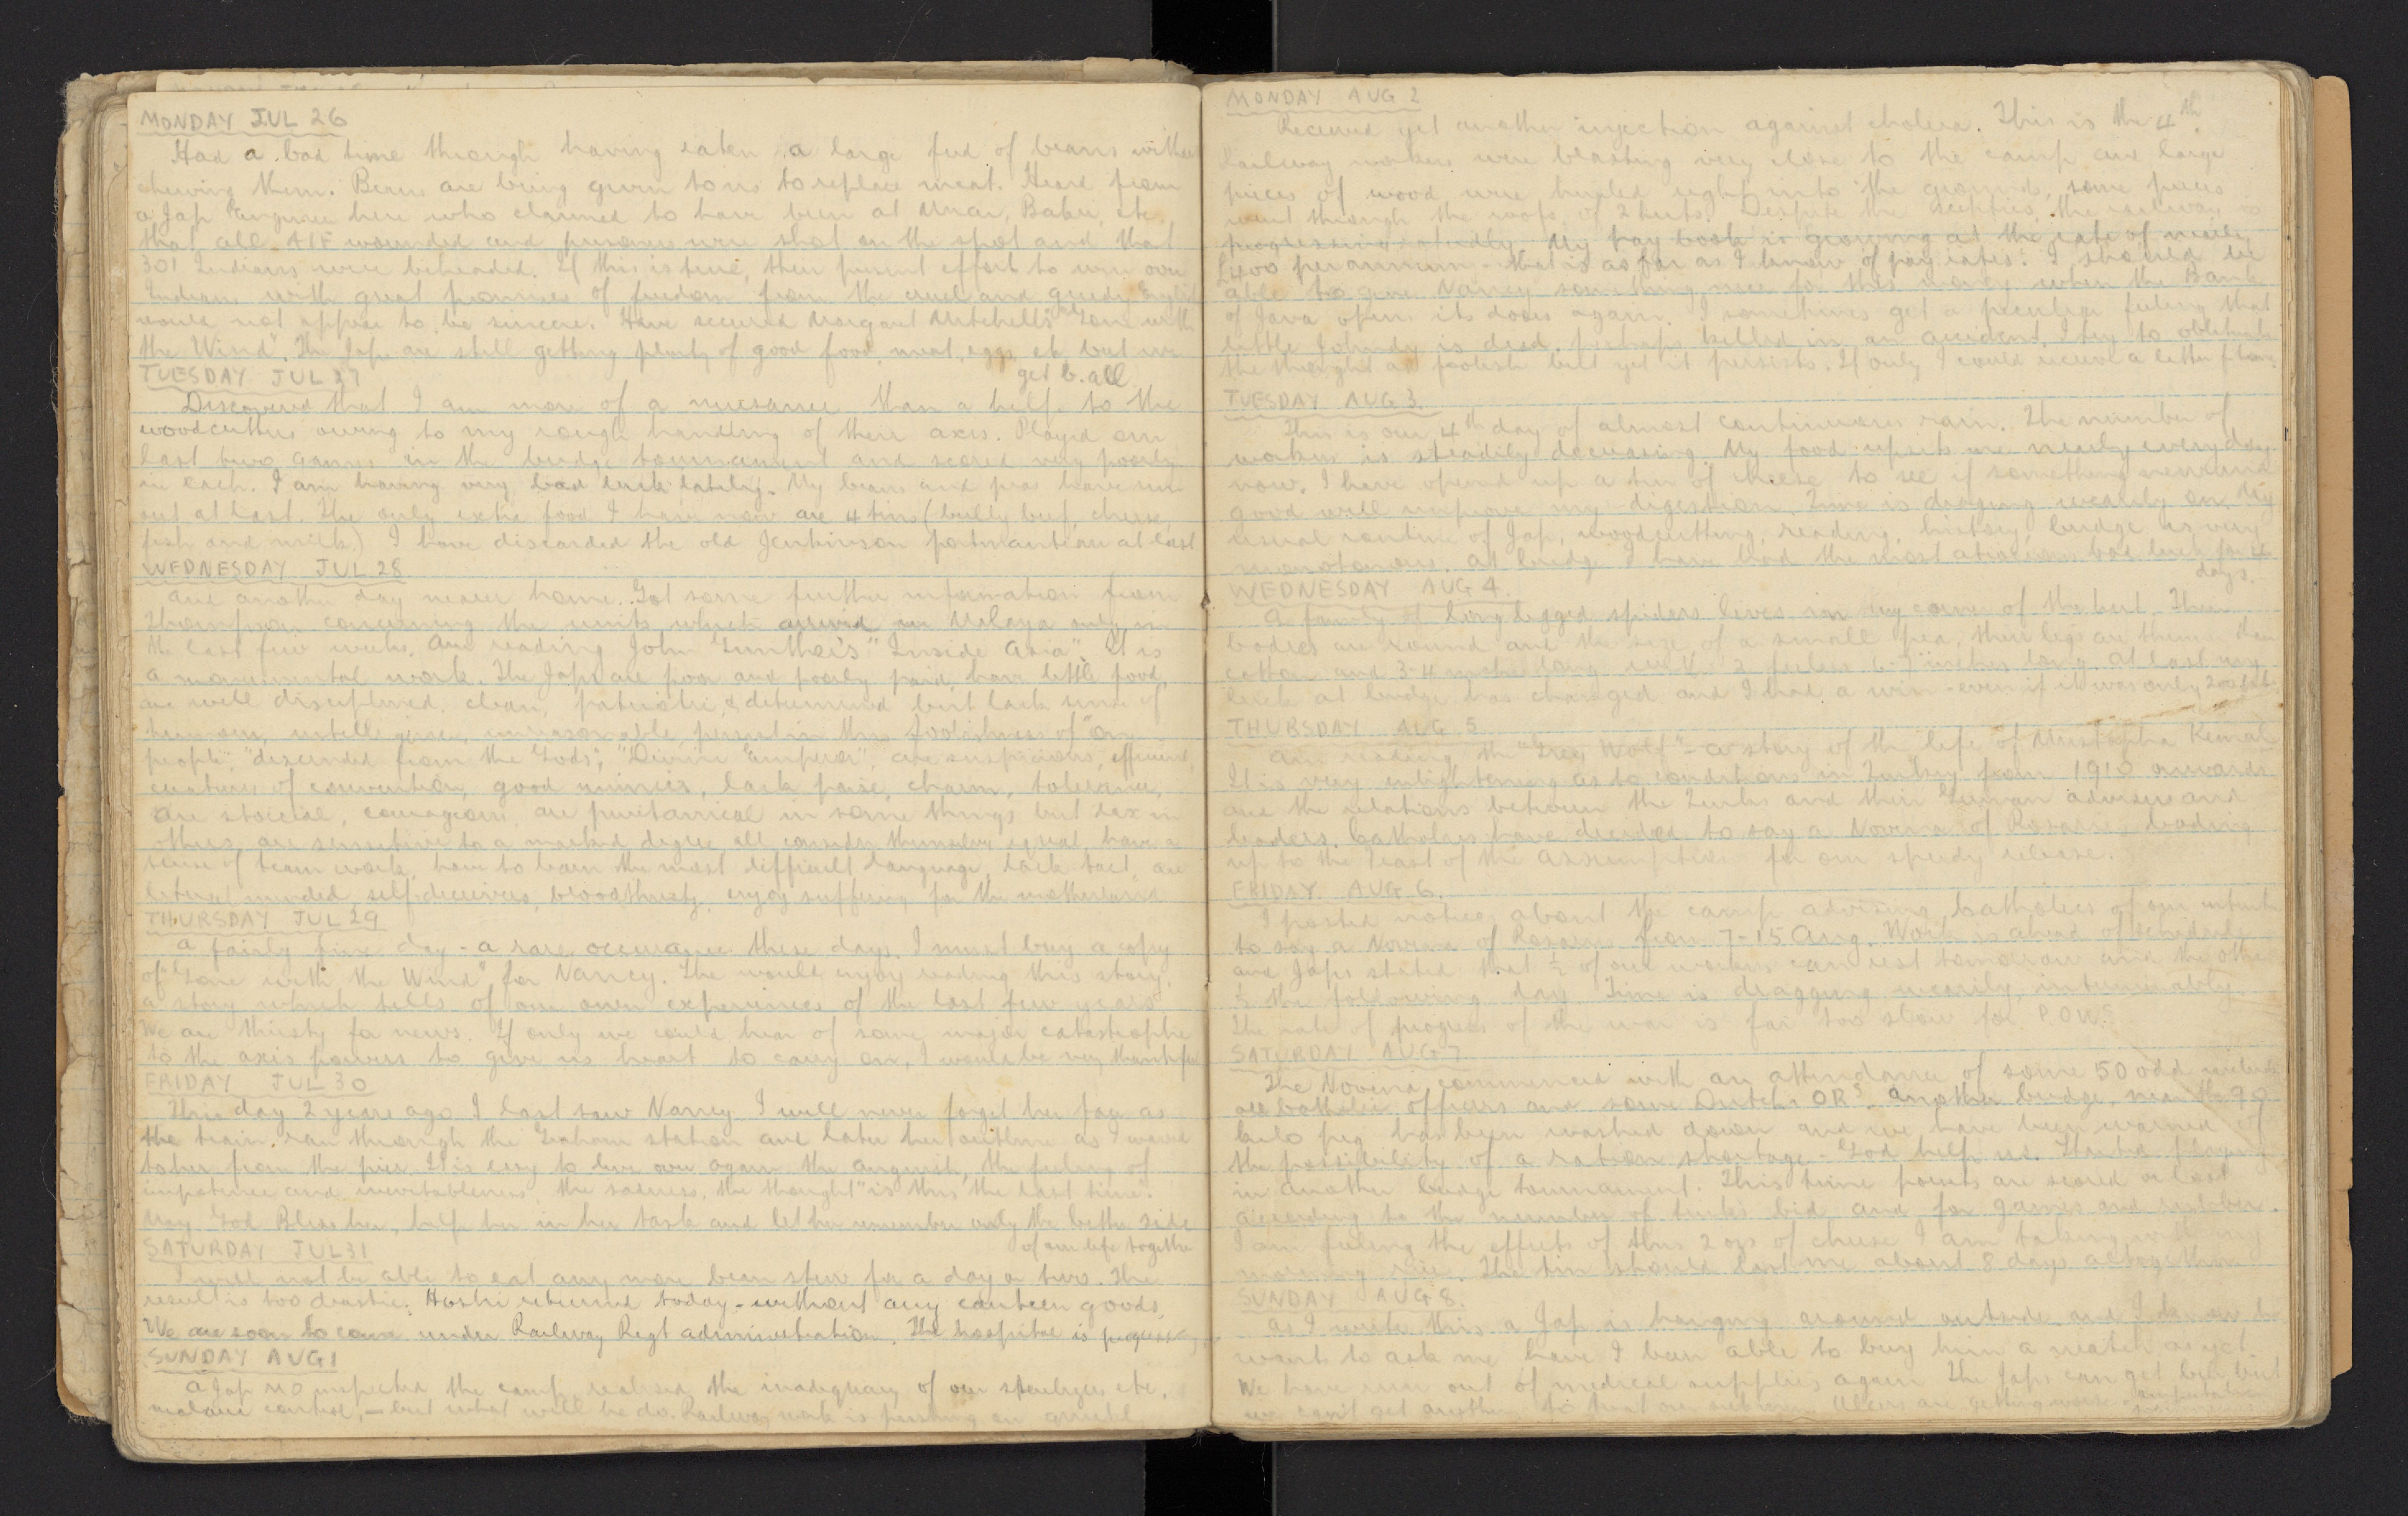 MONDAY JUL 26
Had a bad time through having eaten a large feed of beans without
chewing them. Beans are being given to us to replace meat. Heard from
a Jap Engineer here who claimed to have been at Muar, Bakri, etc
that all AIF wounded and prisoners were shot on the spot and that
301 Indians were beheaded. If this is true, their present effort to win over
Indians with great promises of freedom from the cruel and greedy English
would not appear to be sincere. Have secured Margaret Mitchell's "Gone with
the Wind". The Japs are still getting plenty of good food, meat, eggs, etc but we
get b. all
TUESDAY JUL 27
Discovered that I am more of a nuisance than a help to the
woodcutters owing to my rough handling of their axes. Played our
last two games in the bridge tournament and scored very poorly
in each. I am having very bad luck lately. My beans and peas have run
out at last. The only extra food I have now are 4 tins (bully beef, cheese,
fish and milk.) I have discarded the old Jenkinson portmanteau at last
WEDNESDAY JUL 28
And another day nearer home. Got some further information from
Thompson concerning the units which arrived in Malaya only in
the last few weeks. Am reading John Gunther's "Inside Asia". It is
a monumental work. The Japs are poor and poorly paid, have little food,
are well disciplined, clean, patriotic, & determined but lack sense of
humour, intelligence, unreasonable, persist in this foolishness of "one
people", "descended from the Gods", "Divine Emperor", are suspicious, efficient,
creatures of convention, good mimics, lack poise, charm, tolerance,
are stoical, courageous, are puritanical in some things but lax in
others, are sensitive to a marked degree, all consider themselves equal, have a
sense of team work, have to learn the most difficult language, lack tact, are
literal minded, self-deceivers, bloodthirsty, enjoy suffering for the motherland
THURSDAY JUL 29
A fairly fine day - a rare occurance these days. I must buy a copy
of "Gone with the Wind" for Nancy. She would enjoy reading this story,
a story which tells of our own experiences of the last few years
We are thirsty for news. If only we could hear of some major catastrophe
to the axis powers to give us heart to carry on, I would be very thankful
FRIDAY JUL 30
This day 2 years ago I last saw Nancy. I will never forget her face as
the train ran through the Graham station and later her outline as I waved
to her from the pier. It is easy to live over again the anguish, the feeling of
impotence and inevitableness, the sadness, the thought "is this the last time".
May God Bless her, help her in her task and let her remember only the better side
of our life together
SATURDAY JUL 31
I will not be able to eat any more bean stew for a day or two. The
result is too drastic. Hoshi returned today - without any canteen goods.
We are soon to come under Railway Regt administration. The hospital is
SUNDAY AUG 1
A Jap MO inspected the camp, realised the inadequacy of our etc.
malaria control, - but what will he do. Railway work is pushing on
MONDAY AUG 2
Received yet another injection against cholera. This is the 4th.
Railway workers were blasting very close to the camp and large
pieces of wood were hurled right into the grounds, some pieces
went through the roofs of 2 huts. Despite the sceptics, the railway is
progressing steadily. My Pay book is growing at the rate of nearly
£400 per annum - that is as far as I know of pay rates. I should be
able to give Nancy something nice for this money when the Bank
of Java opens its doors again. I sometimes get a peculiar feeling that
little Johndy is dead, perhaps killed in an accident. I try to obliterate
the thought as foolish but yet it persists. If only I could receive a letter f home.
TUESDAY AUG 3.
This is our 4th day of almost continuous rain. The number of
workers is steadily decreasing. My food upsets me nearly every day
now. I have opened up a tin of cheese to see if something new and
good will improve my digestion. Time is dragging wearily on. My
usual routine of Jap, woodcutting, reading, history, bridge is very
monotonous. At bridge I have had the most atrocious bad luck for
days.
WEDNESDAY AUG 4.
A family of long legged spiders lives in my corner of the hut. Their
bodies are round and the size of a small pea, their legs are thinner than
cotton and 3-4 inches long with 2 feelers 6-7 inches long. At last my
luck at bridge has changed and I had a win - even if it was only
THURSDAY AUG 5
Am reading the "Grey Wolf" - a story of the life of Mustapha Kemal
It is very enlightening as to conditions in Turkey from 1910 onwards
and the relations between the Turks and their German advisers and
leaders. Catholics have decided to say a Novena of Rosaries leading
up to the Feast of the Assumption for our speedy release.
FRIDAY AUG 6.
I posted notices about the camp advising Catholics of our intention
to say a Novena of Rosaries from 7-15 Aug. Work is ahead of schedule
and Japs stated that ½ of our workers can rest tomorrow and the other
½ the following day. Time is dragging wearily, interminably.
The rate of progress of the war is far too slow for P.O.W.s
SATURDAY AUG 7
The Novena commenced with an attendance of some 50 odd
all Catholic officers and some Dutch ORs. Another bridge, near the 90
kilo peg has been washed down and we have been warned of
the possibility of a ration shortage - God help us. Started playing
in another bridge tournament. This time points are scored or lost
according to the number of tricks bid and for games and rubber.
I am feeling the effects of this 2 ozs of cheese I am taking with my
morning rice. The tin should last me about 8 days altogether
SUNDAY AUG 8.
As I write this a Jap is hanging around outside and I know he
wants to ask me have I been able to buy him a watch as yet.
We have run out of medical supplies again. The Japs can get beer but
we can't get anything to treat our Ulcers are getting worse -